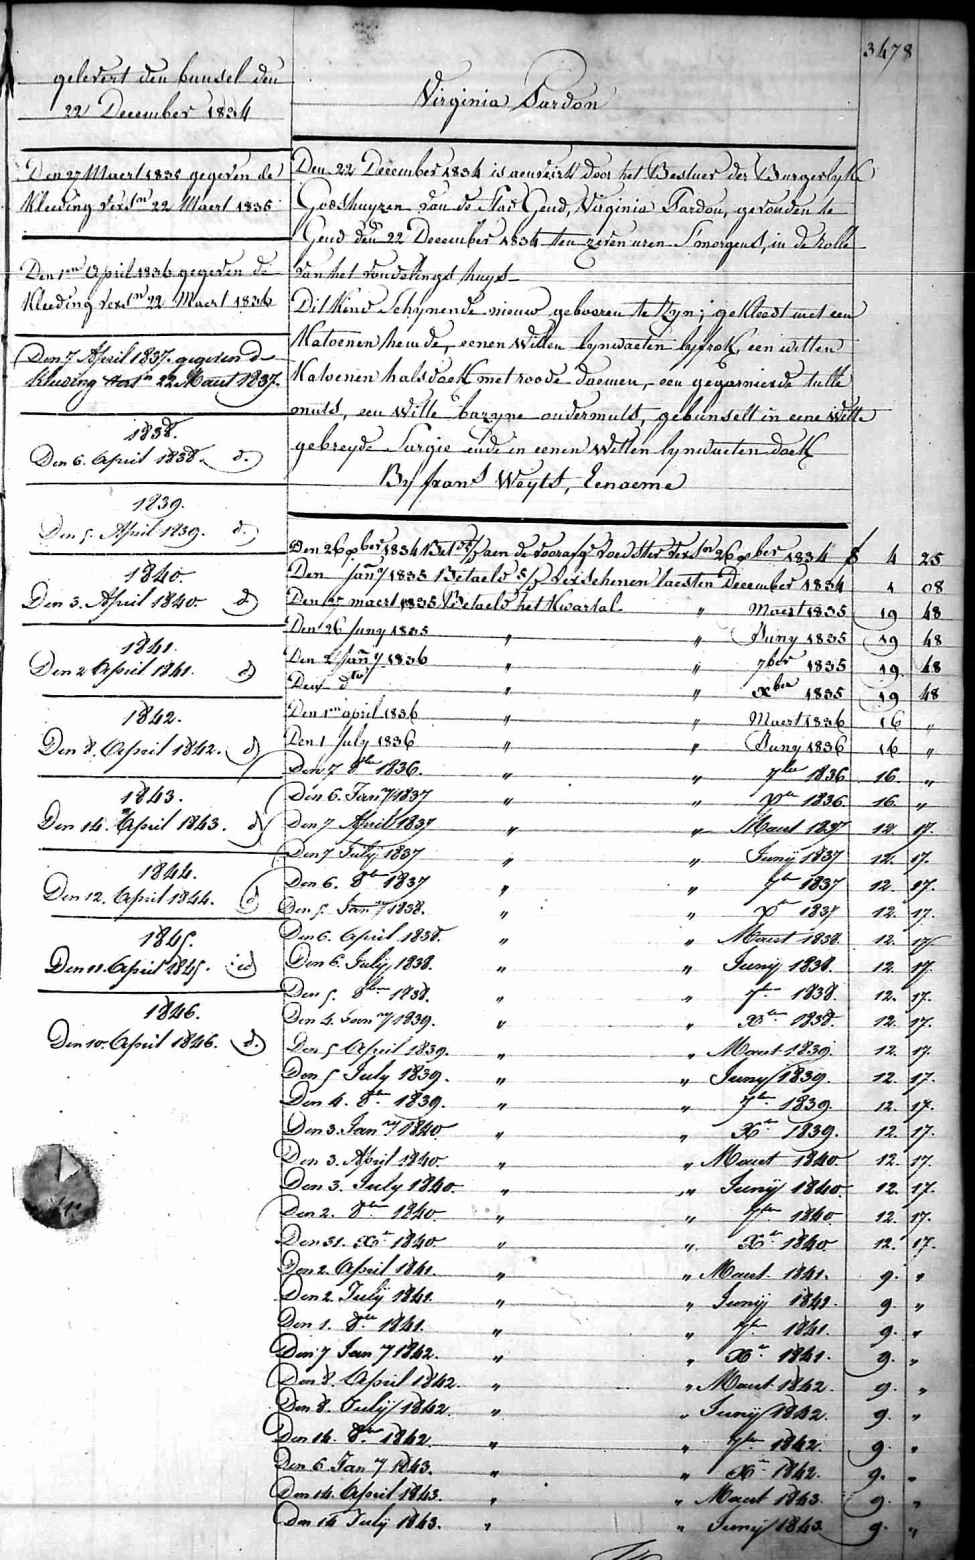 3478
gelevert den bunsel den
22 December 1834
Den 27 Maert 1835 gegeven de
Kleeding versn 22 Maert 1835
Den 1en April 1836 gegeven de
Kleeding versn 22 Maert 1836
Den 7 April 1837. gegeven de
Kleeding versn 22 Maert 1837.
1838.
Den 6. April 1838. d.
1839.
Den 5. April 1839. d.
1840.
Den 3. April 1840. d
1841.
Den 2 April 1841. d
1842.
Den 8. April 1842. d
1843.
Den 14. April 1843. d
1844.
Den 12. April 1844. d
1845.
Den 11. April 1845. d
1846.
Den 10. April 1846. d.
Virginia Pardon
Den 22 December 1834 is aenveirt door het Bestuer der Burgerlyke
Godshuyzen van de Stad Gend, Virginia Pardon, gevonden te
Gend den 22 December 1834 ten zeven uren Smorgens, in de rolle
van het vondelings huys
Dit Kind Schynende nieuw gebooren te Zyn; gekleed met een
Katoenen hemde, eenen Witten lynwaeten lyfrok, een witten
Katoenen halsdoek met roode daemen, een gegarnierde tulle
muts, een Witte bazyne ondermuts, gebunselt in eene Witte
gebreyde Sargie ende in eenen Witten lynwaeten doek
By frans Weyts, Eenaeme
Den 26 xber 1834 Bet aen de voorafge voedster versn 26 xber 1834 f 4 25
Den Jany 1835 Betaeld Verschenen laesten December 1834 1 08
Den maert 1835 Betaeld het Kwartal " Maert 1835 19 48
Den 26 Juny 1835 " " Juny 1835 19 48
Den 2 Jany 1836 " " 7ber 1835 19 48
Den do " " xber 1835 19 48
Den 1en april 1836 " " Maert 1836 16 "
Den 1 July 1836 " " Juny 1836 16 "
Den 7 8br 1836. " " 7ber 1836 16. "
Den 6. Jany 1837 " " xbr 1836. 16. "
Den 7 April 1837 " " Maert 1837 12. 17.
Den 7 July 1837 " " Junij 1837 12. 17.
Den 6. 8br 1837 " " 7br 1837 12. 17.
Den 5. Jany 1838. " " xr 1837 12. 17.
Den 6. April 1838. " " Maert 1838. 12. 17
Den 6. July 1838. " " Junij 1838. 12. 17.
Den 5. 8br 1838. " " 7br 1838 12. 17.
Den 4. Jany 1839. " " Xbr 1838. 12. 17.
Den 5 April 1839. " " Maert 1839. 12. 17.
Den 5 July 1839. " " Juny 1839. 12. 17.
Den 4. 8br 1839. " " 7br 1839. 12. 17.
Den 3. Jany 1840 " " Xbr 1839. 12. 17.
Den 3. April 1840. " " Maert 1840. 12. 17.
Den 3. July 1840. " " Junij 1840. 12. 17.
Den 2. 8br 1840. " " 7br 1840 12. 17.
Den 31. Xbr 1840. " " Xr 1840 12. 17.
Den 2. April 1841. " " Maert 1841. 9. "
Den 2. Julij 1841. " " Junij 1841. 9. "
Den 1. 8br 1841. " " 7br 1841. 9. "
Den 7 Jany 1842. " " Xr 1841. 9. "
Den 8. April 1842. " " Maert 1842. 9. "
Den 8. Julij 1842. " " Junij 1842. 9. "
Den 14. 8br 1842 " " 7br 1842. 9. "
Den 6 Jany 1843. " " Xr 1842. 9. "
Den 14. April 1843. " " Maert 1843. 9. "
Den 14 Julij 1843. " " Junij 1843 9. "